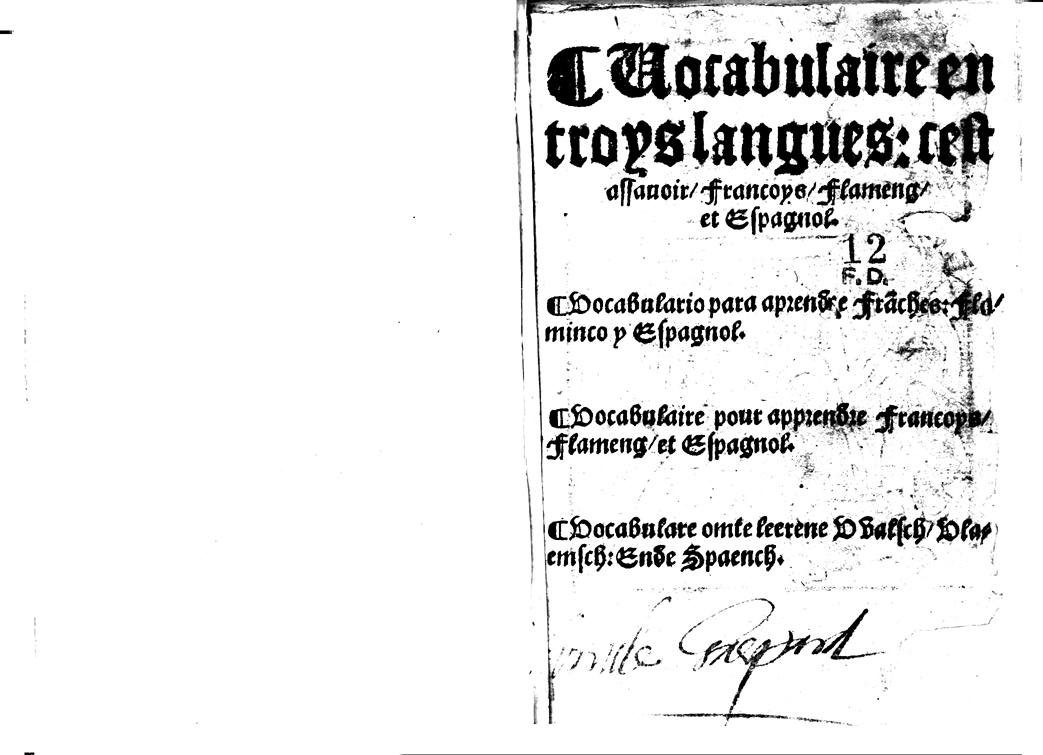 ¶ Vocabulaire en
troys langues: cest
assauoir/ Francoys/ Flameng/
et Espagnol.
12
F.D.
¶ Vocabulario para aprendre Frãches: Fla/
minco y Espagnol.
¶ Vocabulaire pour apprendre Francoys/
Flameng/ et Espagnol.
¶ Vocabulare omte leerene VValsch/ Vla/
emsch: Ende Spaench.